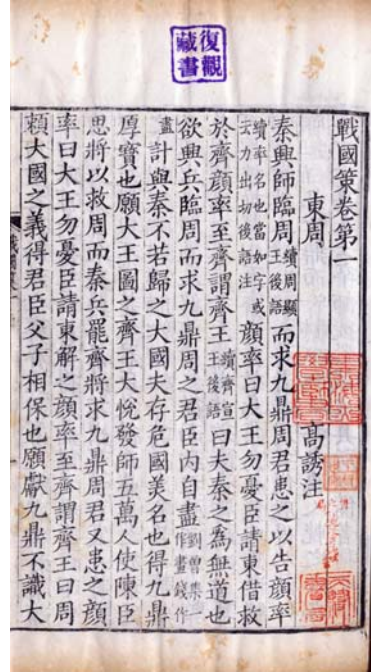 復觀藏書
戰國策卷第一
東周
高誘注
秦興師臨周續周顯王後語而求九鼎周君患之以告顏率
續率名也當如字或云力出切後語注顏率曰大王勿憂臣請東借救
於齊顏率至齊謂齊王續齊宣王後語曰夫秦之爲無道也
欲興兵臨周而求九鼎周之君臣內自盡劉曾集一作書錢作
盡計與秦不若歸之大國夫存危國美名也得九鼎
厚寶也願大王圖之齊王大悅發師五萬人使陳臣
思將以救周而秦兵罷齊將求九鼎周君又患之顏
率曰大王勿憂臣請東解之顏率至齊謂齊王曰周
賴大國之義得君臣父子相保也願獻九鼎不識大